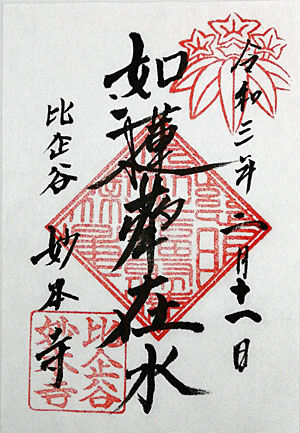 令和三年二月十一日
如蓮華在水
比企谷 妙本寺
比企谷
妙本寺